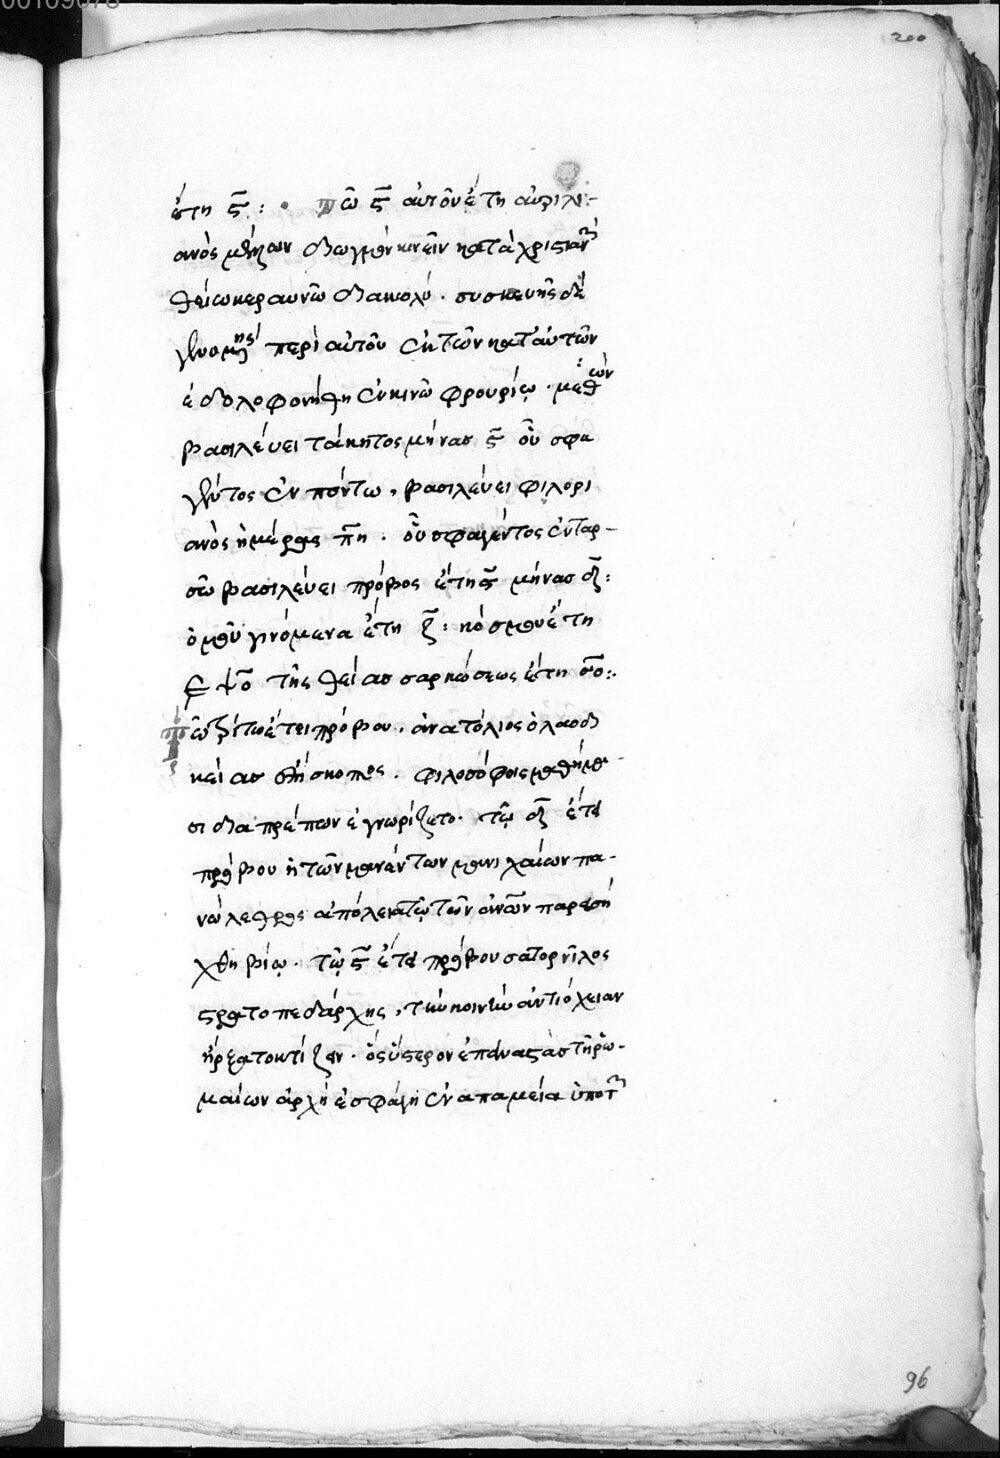 200
ἔτη ϛ̅ : · τῷ ϛ̅ αὐτοῦ ἔτη αὐριλι-
ανὸς μέλλων διωγμὸν κινεῖν κατὰ χριστιαν
θείω κεραυνῶ διακολύ · συσκευῆς δὲ
γενομένης περὶ αὐτοῦ ἐκ τῶν κατ' αὐτῶν
ἐδολοφονήθη ἐν κινῶ φρουρίῳ · μεθ ὧν
βασιλεύει τάκητος μήνας ϛ̅ οὗ σφα
γέντος ἐν πόντω, βασιλεύει φιλορι
ανὸς ἡμέρας π̅η · οὗ σφαγέντος ἐν ταρ-
σῶ βασιλεύει πρόβος ἔτη ϛ̅ μήνας δ̅ :
ὁμοῦ γινόμενα ἔτη ζ̅ : κόσμου ἔτη
͵εψ̅ο τῆς θείας σαρκώσεως ἔτη σ̅ο :·
τῶ πρώτω ἔτει πρόβου, ἀνατόλιος ὁ λαοδι
κείας ἐπίσκοπος · φιλοσόφοις μαθήμα-
σι διαπρέπων ἐγνωρίζετο · τῷ δ̅ ἔτει
πρόβου ἡ τῶν μανέντων μανιχαίων πα-
νώλεθρος ἀπόλεια τῷ τῶν ἀνῶν παρεισή
χθη βίῳ · τῷ ϛ̅ ἔτει πρόβου σατορνῖλος
στρατοπεδάρχης, τὴν κοινὴν ἀντιόχειαν
ἤρξατο κτίζειν · ὃς ὕστερον ἐπαναστὰς τῆ ῥω-
μαίων ἀρχῆ ἐσφάγη ἐν απαμεία ὑπὸ τ
96